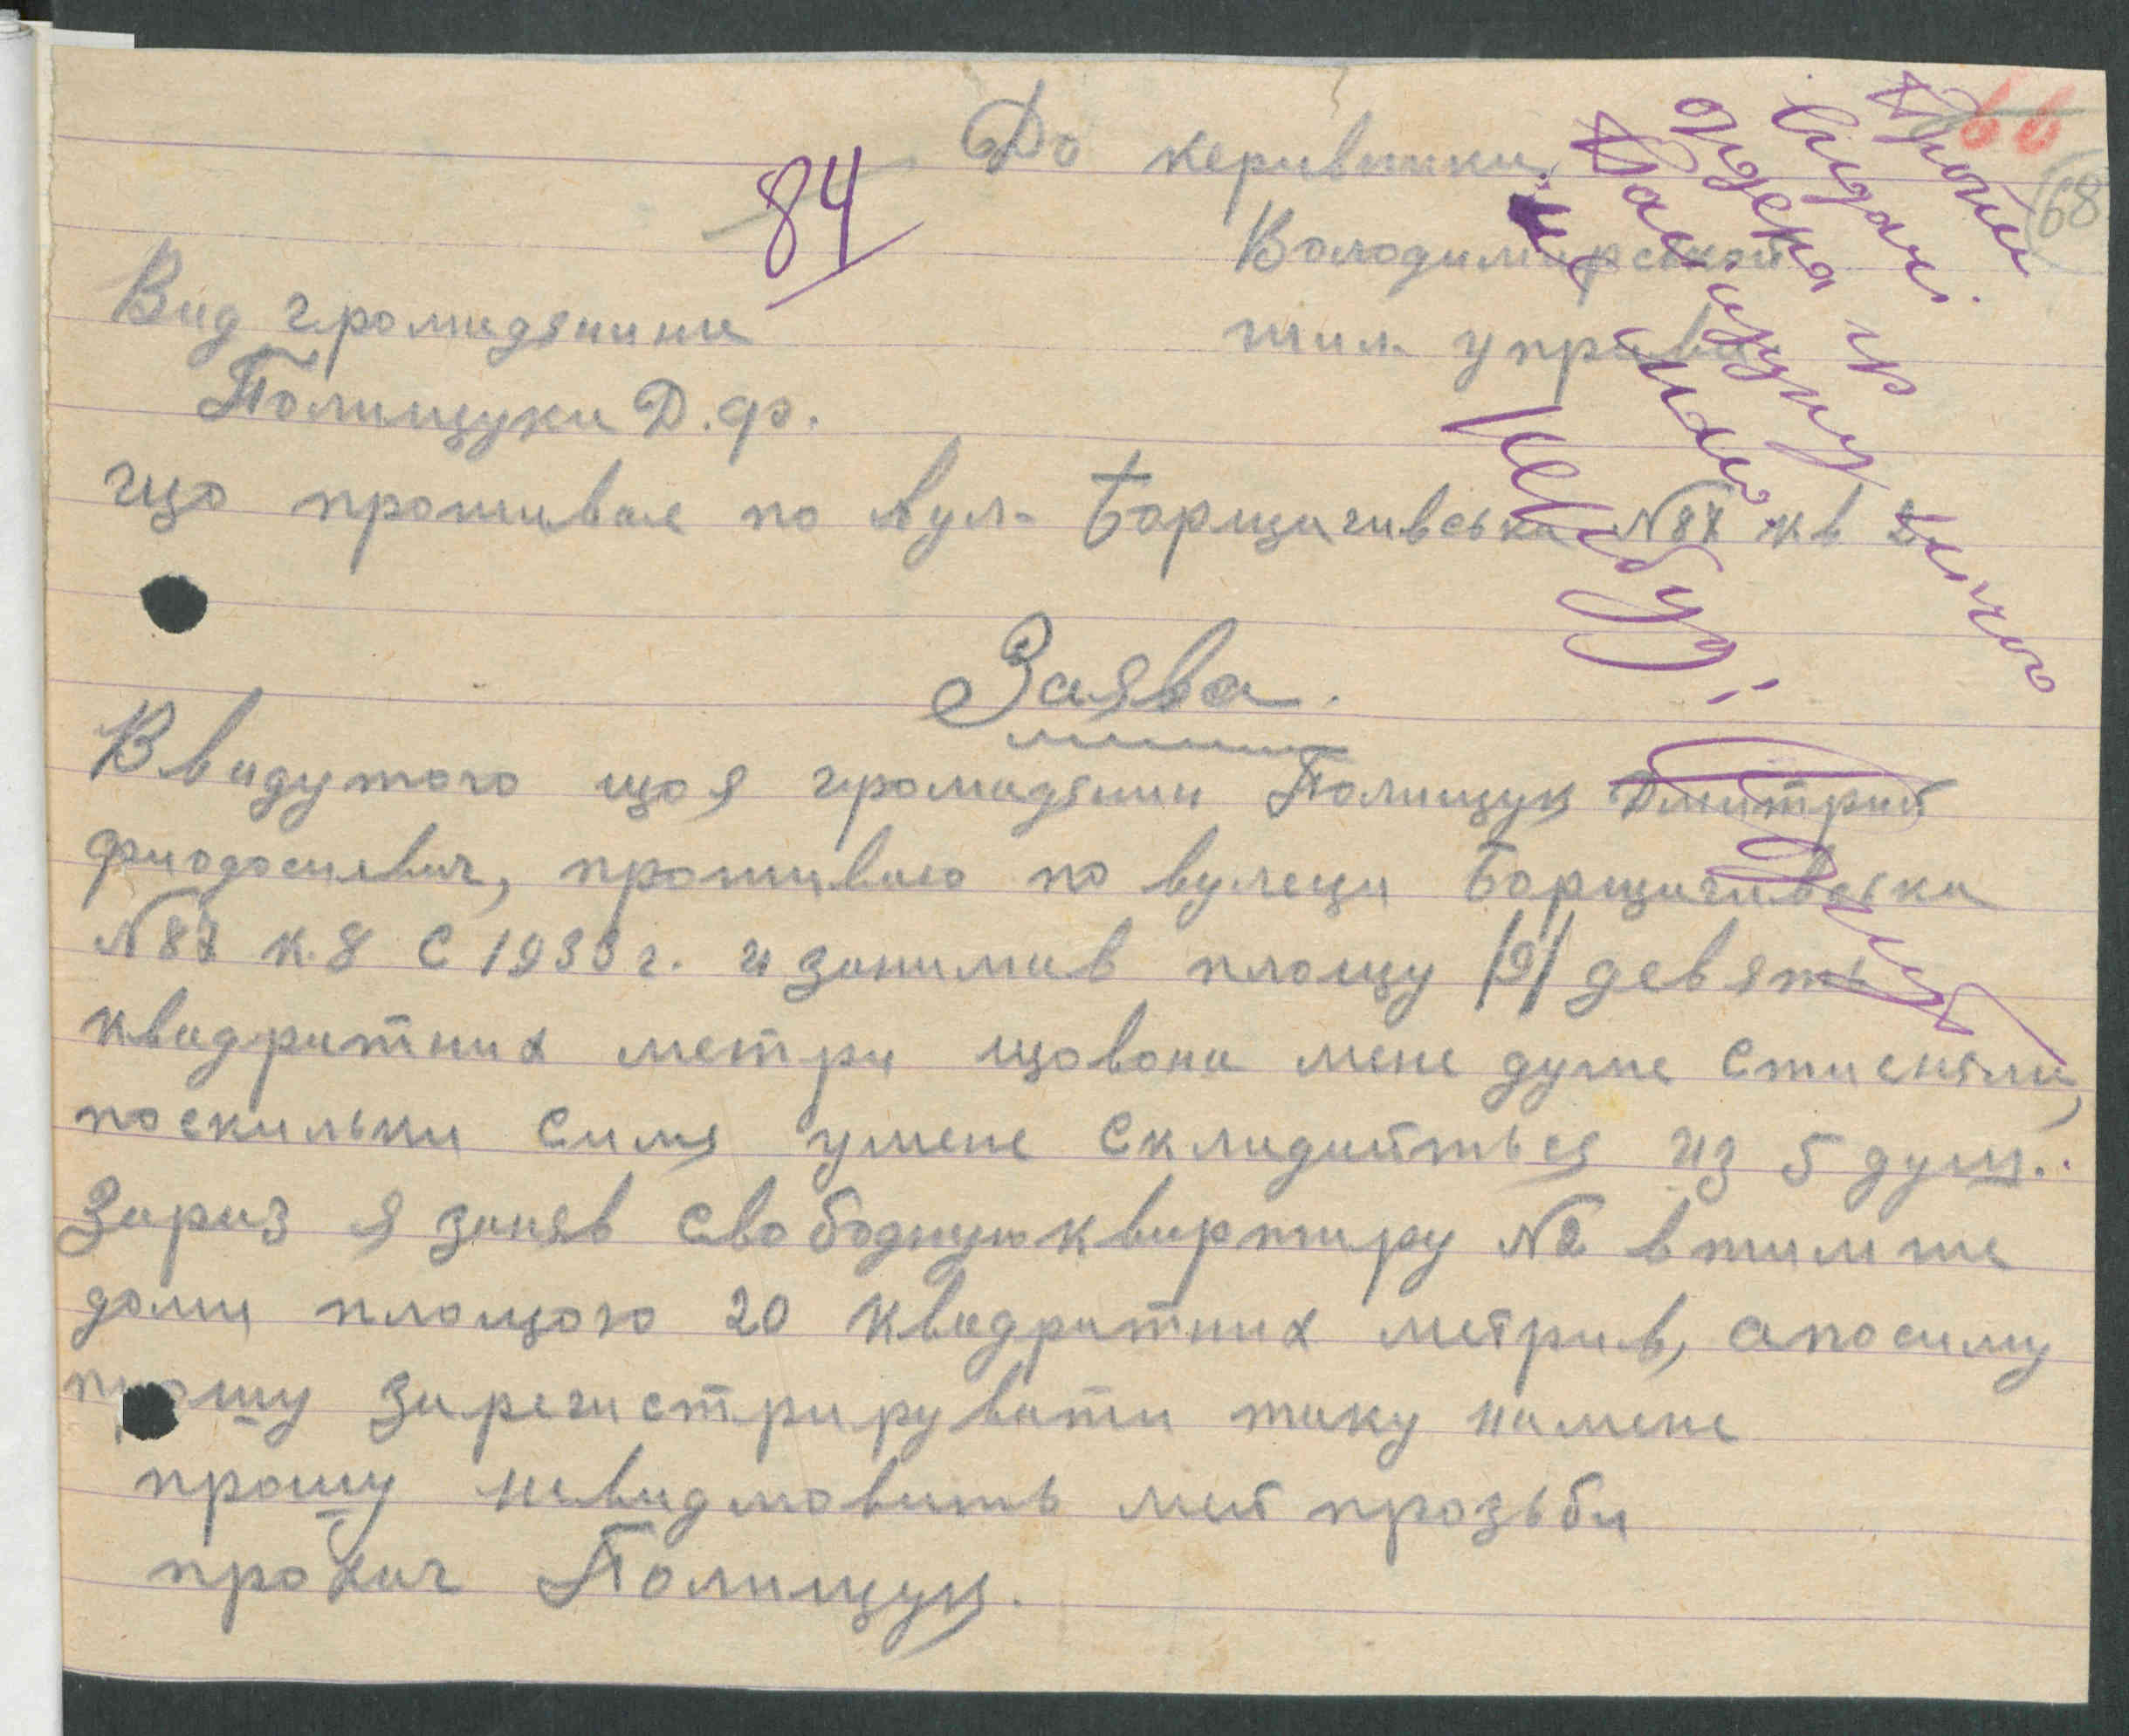 66
68
84
До керивника
Володимирской
жил. управи
Вид громадянина
Полищука Д. Ф.
що проживае по вул. Борщагивська №87 кв 2
Заява.
Ввидутого щоя громадянин Полищук Дмитрий
Фиодосиевич, проживаю по вулеци Борщагивська
№87 к. 8 с 1933 г. и занимав площу /9/ девять
квадратних метри щовона мене дуже стисняли,
поскильки симя умене складаиться из 5 душ..
Зараз я заняв свободнуюквартиру №2 втимже
доми площою 20 квадратних метрив, апосиму
прошу зарегистрирувати таку намене
прошу невидмовить меи прозьби
прохач Полищук.